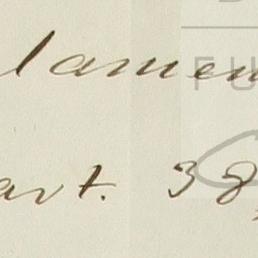 lamen
art. 38,